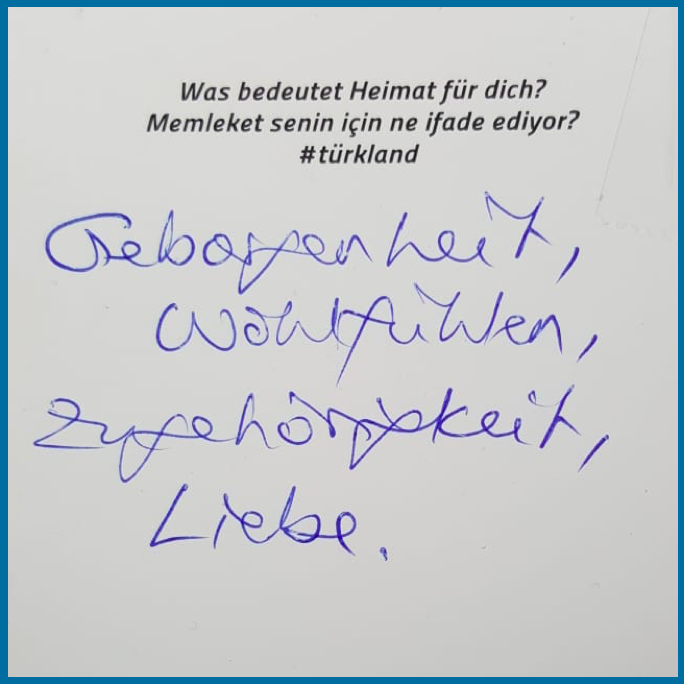 Was bedeutet Heimat für dich?
Memleket senin için ne ifade ediyor?
#türkland
Geborgenheit,
Wohlfühlen,
Zugehörigkeit,
Liebe.